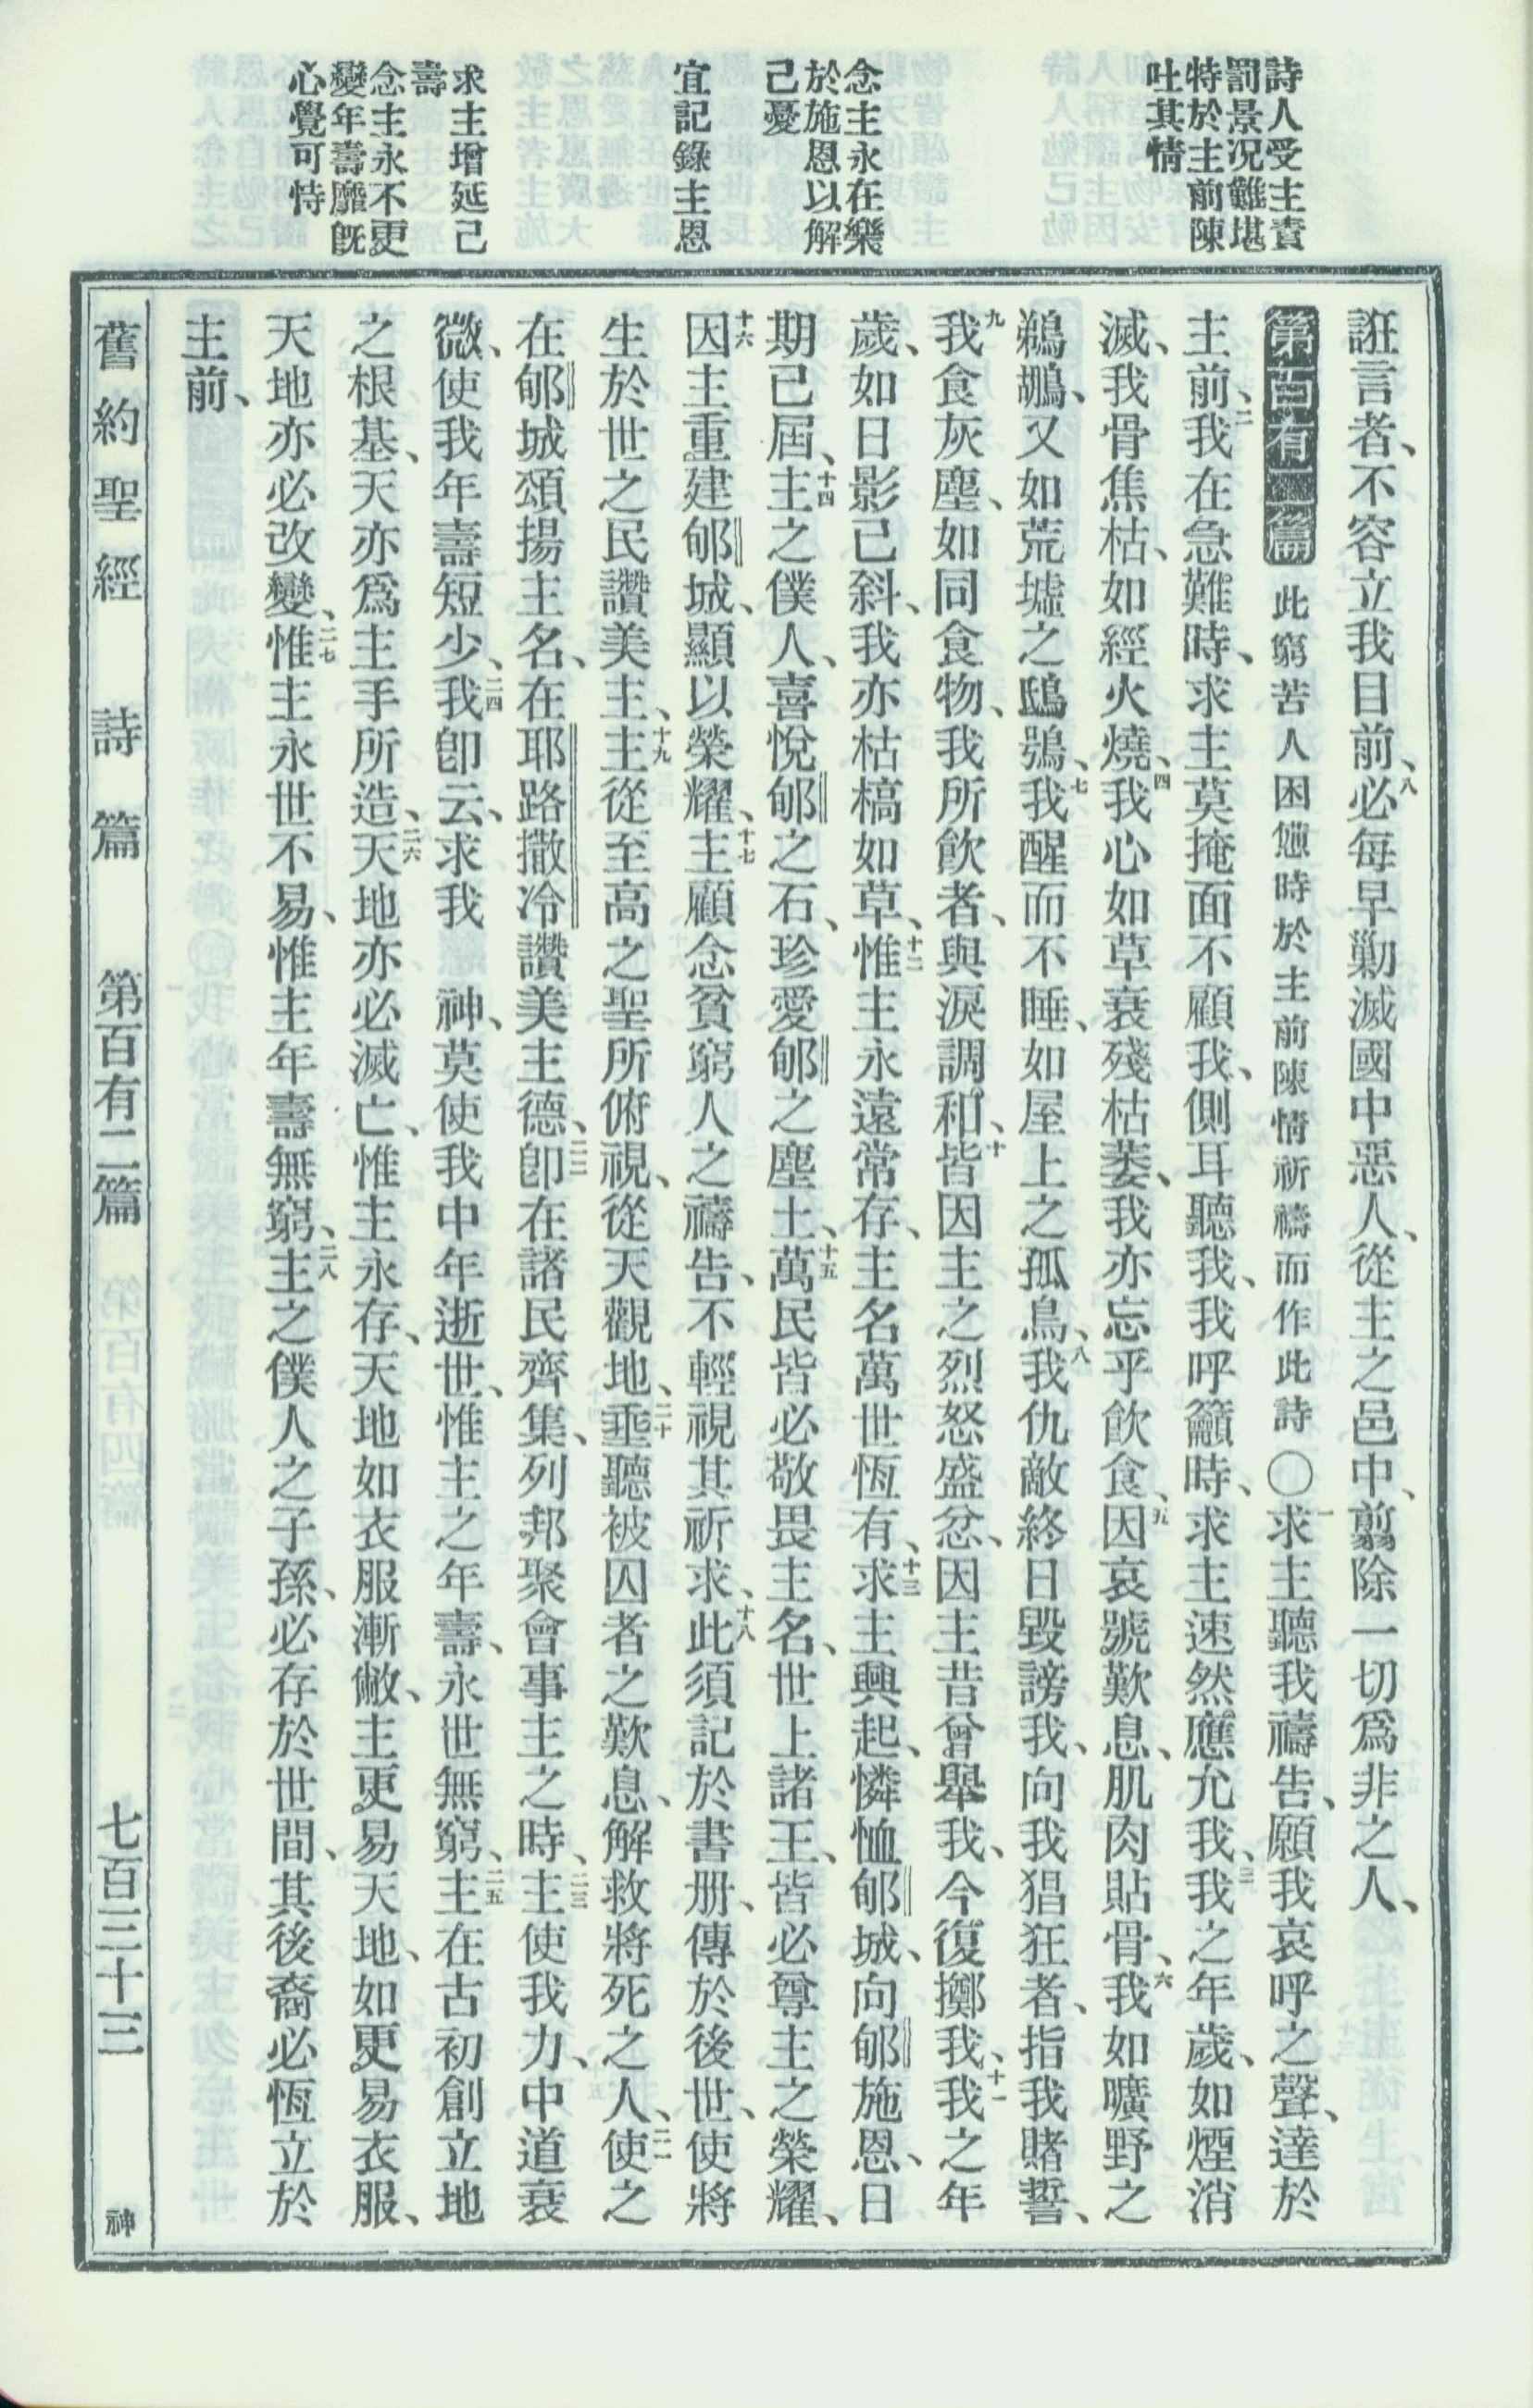 詩人受主責
罰景況難堪
特於主前陳
吐其情
念主永在樂
於施恩以解
己憂
宜記錄主恩
求主增延己
壽
念主永不更
變年壽靡旣
心覺可恃
誑言者、不容立我目前、八必每早勦滅國中惡人、從主之邑中、翦除一切爲非之人、
第一百有二篇 此窮苦人困憊時於主前陳情祈禱而作此詩〇一求主聽我禱告、願我哀呼之聲、達於
主前、二我在急難時、求主莫掩面不顧我、側耳聽我、我呼籲時、求主速然應允我、三我之年歲、如煙消
滅、我骨焦枯、如經火燒、四我心如草衰殘枯萎、我亦忘乎飲食、五因哀號歎息、肌肉貼骨、六我如曠野之
鵜鶘、又如荒墟之鴟鴞、七我醒而不睡、如屋上之孤鳥、八我仇敵終日毀謗我、向我猖狂者、指我賭誓、
九我食灰塵、如同食物、我所飲者、與淚調和、十皆因主之烈怒盛忿、因主昔曾舉我、今復擲我、十一我之年
歲、如日影已斜、我亦枯槁如草、十二惟主永遠常存、主名萬世恆有、十三求主興起、憐恤郇城、向郇施恩、日
期已屆、十四主之僕人、喜悅郇之石、珍愛郇之塵土、十五萬民皆必敬畏主名、世上諸王、皆必尊主之榮耀、
十六因主重建郇城、顯以榮耀、十七主顧念貧窮人之禱告、不輕視其祈求、十八此須記於書册、傳於後世、使將
生於世之民讚美主、十九主從至高之聖所俯視、從天觀地、二十垂聽被囚者之歎息、解救將死之人、二一使之
在郇城頌揚主名、在耶路撒冷讚美主德、二二卽在諸民齊集、列邦聚會事主之時、二三主使我力、中道衰
微、使我年壽短少、二四我卽云、求我 神、莫使我中年逝世、惟主之年壽、永世無窮、二五主在古初創立地
之根基、天亦爲主手所造、二六天地亦必滅亡、惟主永存、天地如衣服漸敝、主更易天地、如更易衣服、
天地亦必改變、二七惟主永世不易、惟主年壽無窮、二八主之僕人之子孫、必存於世間、其後裔必恆立於
主前、
舊約聖經 詩篇 第百有二篇 七百三十三 神